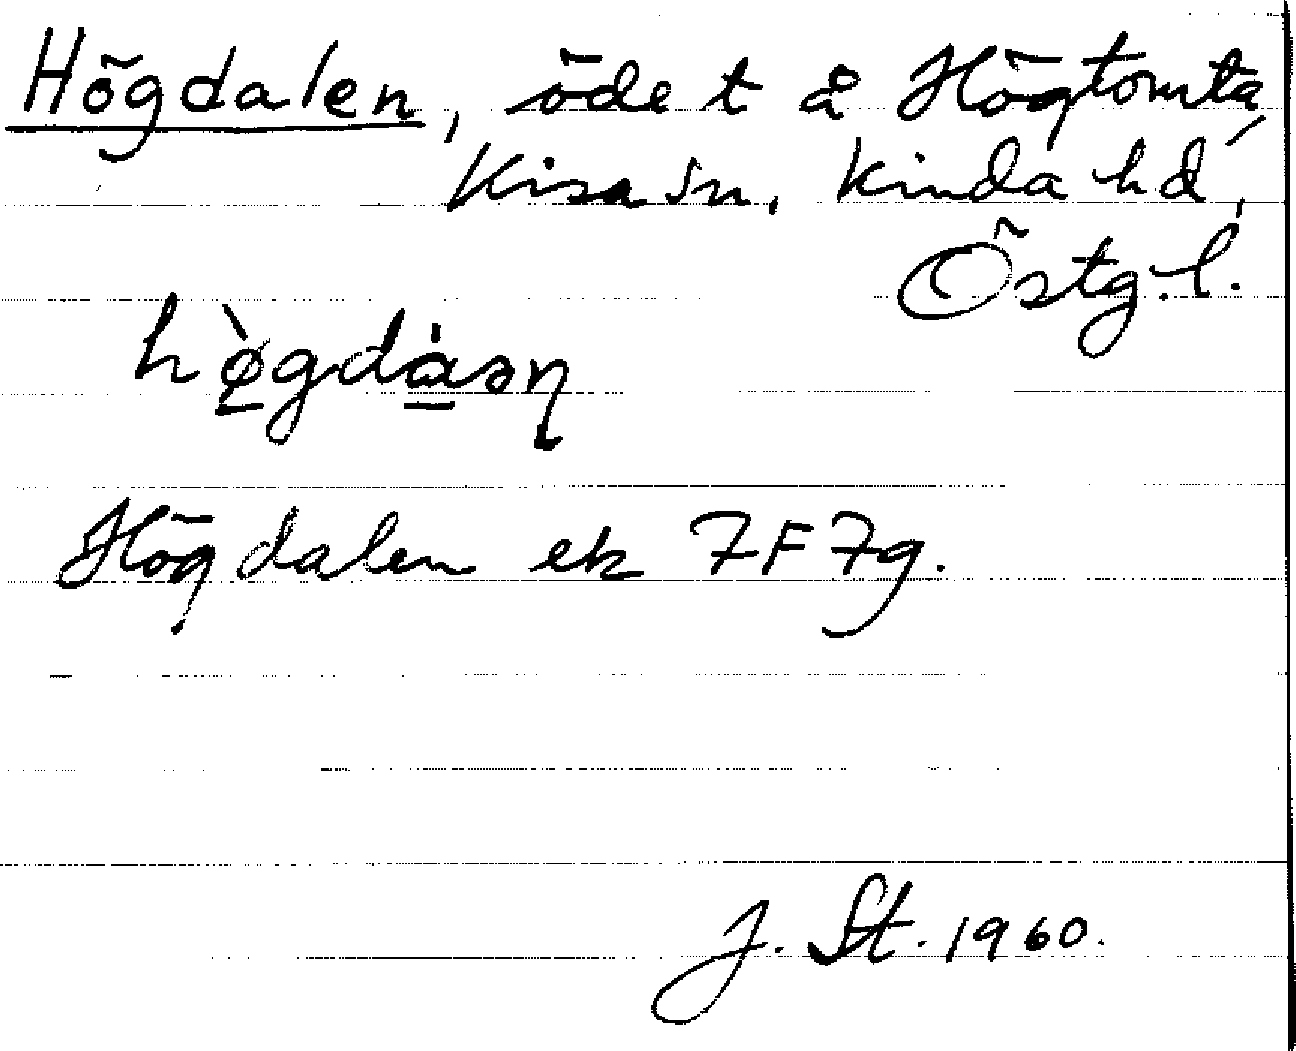 Högdalen, öde t å Högtomta,
Kisa sn, Kinda hd,
Östg. l.
hø̀gdàən
Högdalen ek 7F7g.
J. St. 1960.